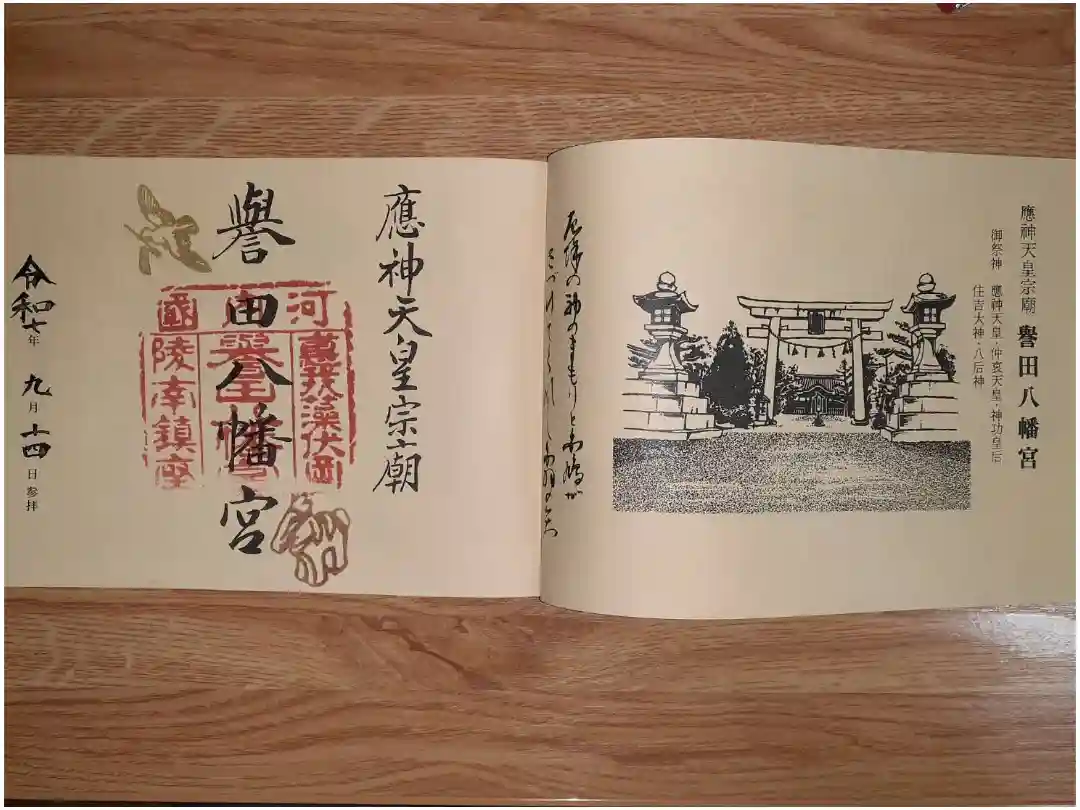 應神天皇宗廟 譽田八幡宮
御祭神 應神天皇・仲哀天皇・神功皇后
住吉大神・八后神
の神のまもりと
應神天皇宗廟
譽田八幡宮
河内國
惠我藻伏岡
陵南鎮座
令和七年九月十四日参拝